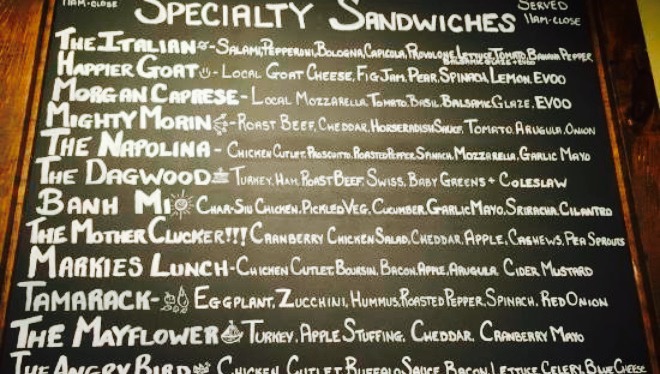 11AM-CLOSE
SPECIALTY SANDWICHES
SERVED
11AM-CLOSE
THE ITALIAN - SALAMI, PEPPERONI, BOLOGNA, CAPICOLA, PROVOLONE, LETTUCE, TOMATO, BANANA PEPPER,
BALSAMIC GLAZE + EVOO
HAPPIER GOAT - LOCAL GOAT CHEESE, FIG JAM, PEAR, SPINACH, LEMON, EVOO
MORGAN CAPRESE - LOCAL MOZZARELLA, TOMATO, BASIL, BALSAMIC GLAZE, EVOO
MIGHTY MORIN - ROAST BEEF, CHEDDAR, HORSERADISH SAUCE, TOMATO, ARUGULA, ONION
THE NAPOLINA - CHICKEN CUTLET, PROSCIUTTO, ROASTED PEPPER, SPINACH, MOZZARELLA, GARLIC MAYO
THE DAGWOOD TURKEY, HAM, ROAST BEEF, SWISS, BABY GREENS + COLESLAW
BANH MI CHAR-SIU CHICKEN, PICKLED VEG, CUCUMBER, GARLIC MAYO, SRIRACHA, CILANTRO
THE MOTHER CLUCKER!!! CRANBERRY CHICKEN SALAD, CHEDDAR, APPLE, CASHEWS, PEA SPROUTS
MARKIES LUNCH - CHICKEN CUTLET, BOURSIN, BACON, APPLE, ARUGULA, CIDER, MUSTARD
TAMARACK - EGGPLANT, ZUCCHINI, HUMMUS, ROASTED PEPPER, SPINACH, RED ONION
THE MAYFLOWER TURKEY, APPLE STUFFING, CHEDDAR, CRANBERRY MAYO
THE ANGRY BIRD CHICKEN CUTLET, BUFFALO SAUCE, BACON, LETTUCE, CELERY, BLUE CHEESE